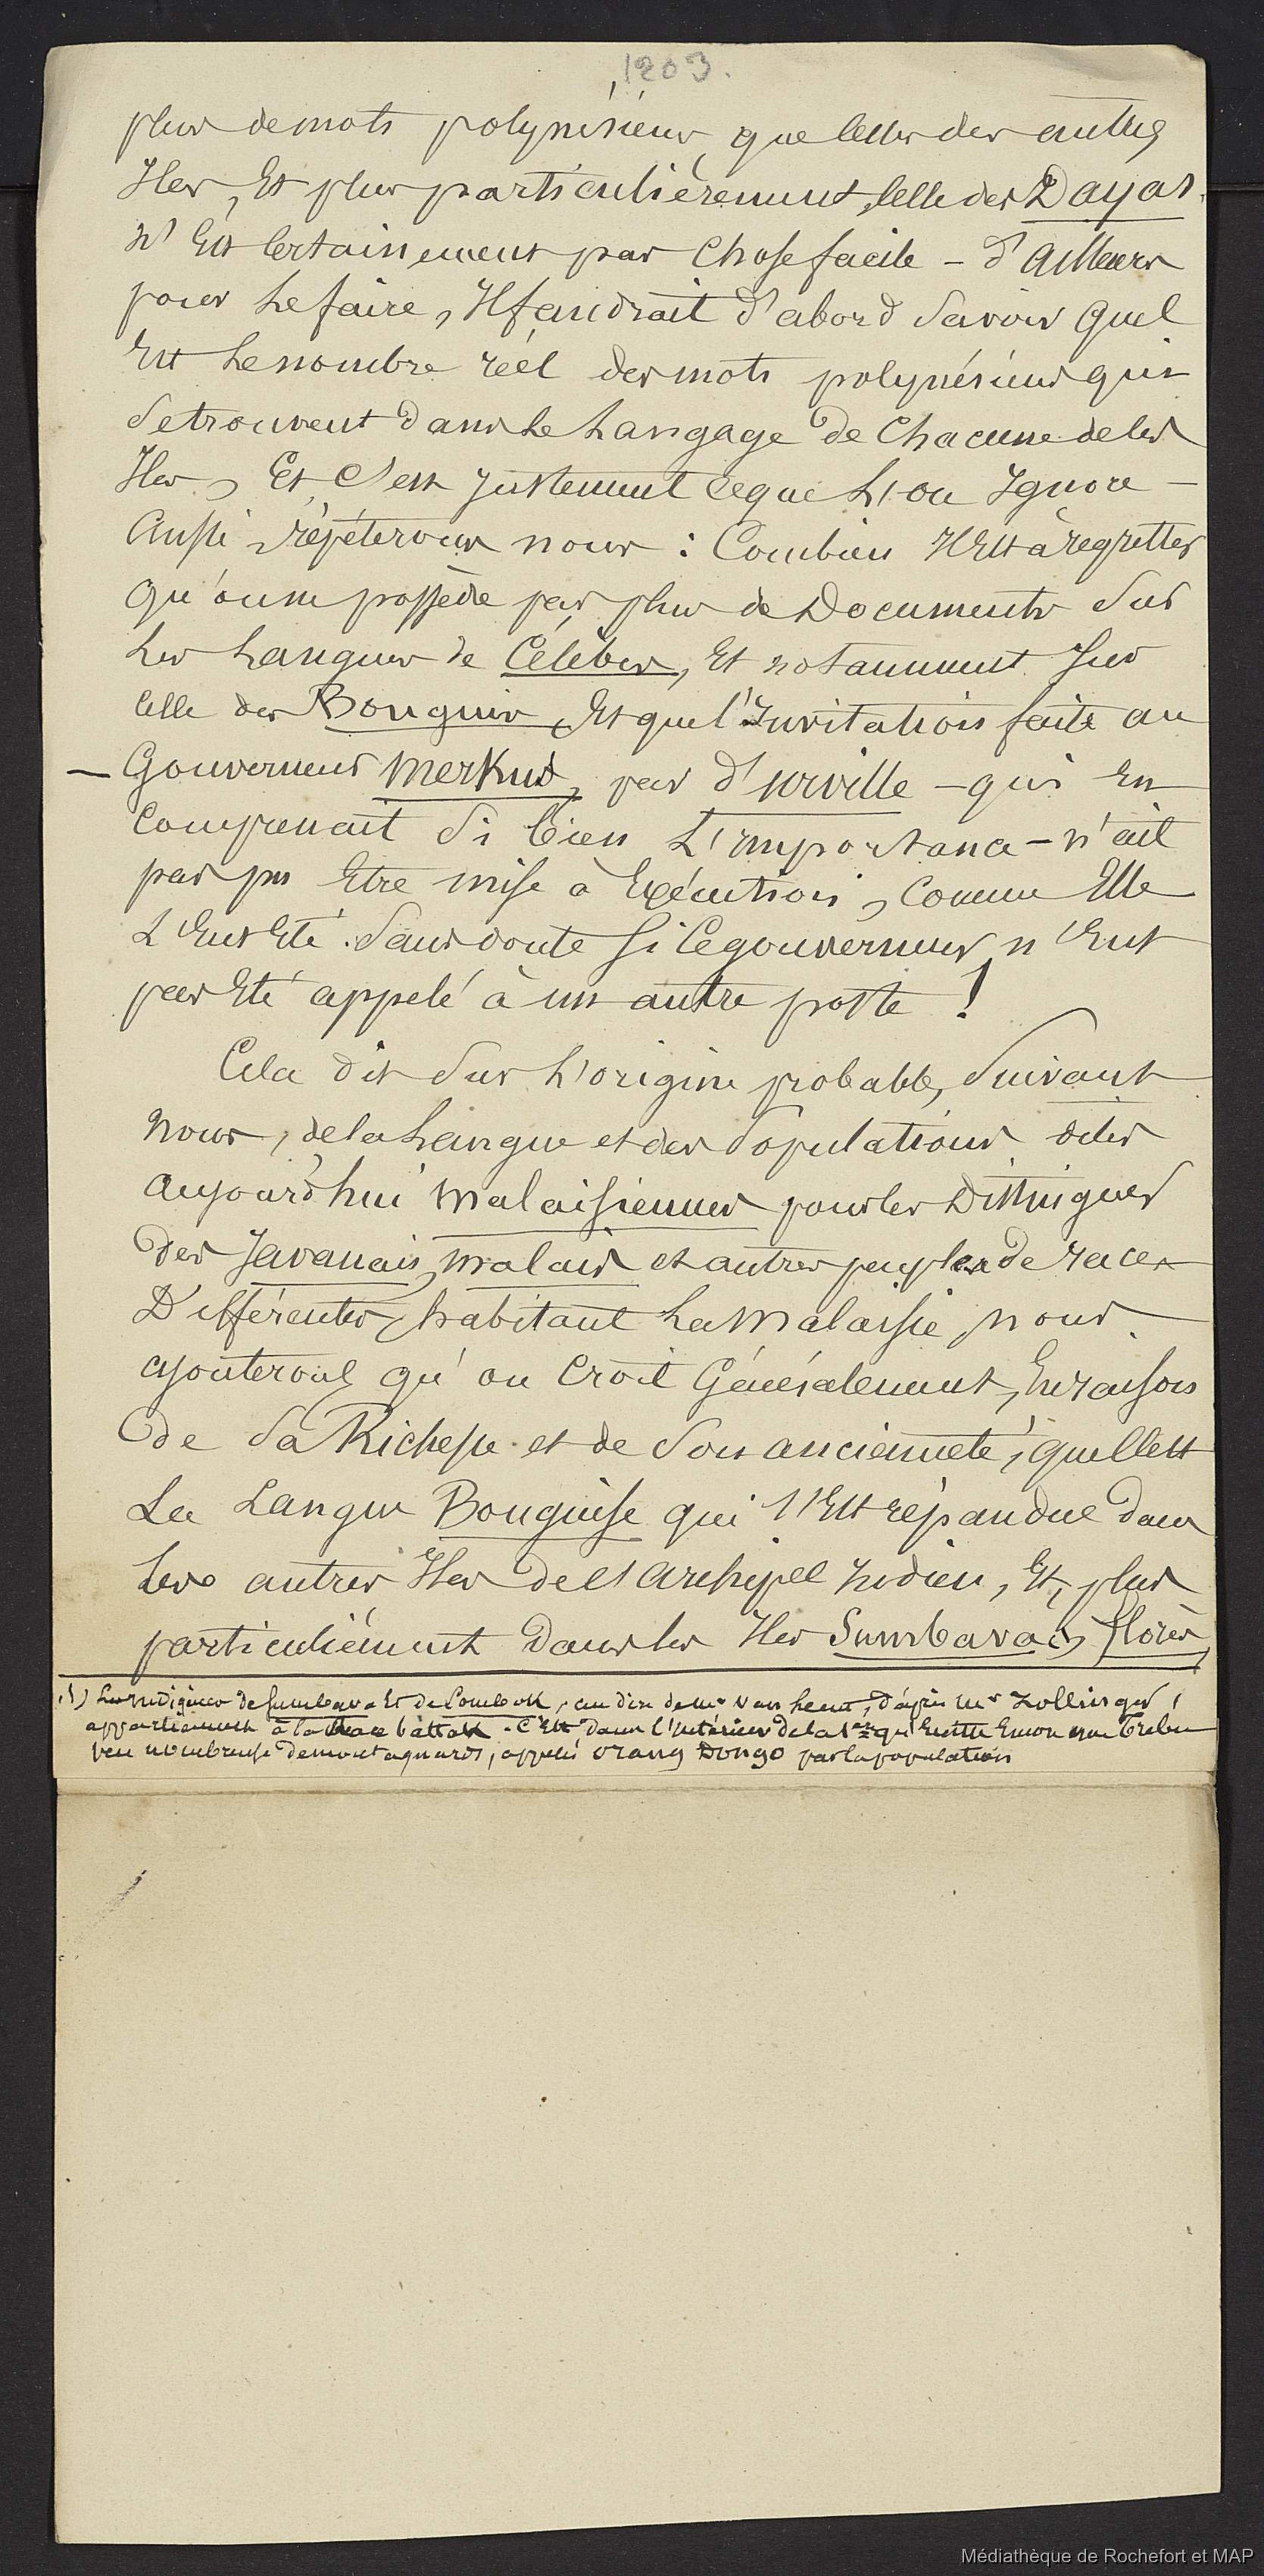 1203.
plus de mots polynésiens que celles des autres
Iles, Et plus particulièrement, celle des Dayas.
N'Est Certainement pas Chose facile – d'ailleurs
pour Le faire, Il faudrait d'abord Savoir quel
Est Le nombre réel des mots polynésiens qui
Se trouvent dans Le Langage de Chacune de Ces
Iles, Et C'est Justement Ce que L'on Ignore –
Aussi répéterons nous : Combien Il Est à regretter
qu'on ne possède pas plus de Documents Sur
Les Langues de Célèbes, Et notamment Sur
Celle des Bouguis, Et que l'Invitation faite au
– Gouverneur Merkus, par d'urville – qui En
Comprenait Si bien L'Importance – n'ait
pas pu Etre mise à Exécution, Comme Elle
L'Eut Eté Sans doute Si Ce gouverneur n'Eut
pas Eté appelé à un autre poste !
Cela dit Sur L'origine probable, Suivant
Nous, de la Langue et des Populations dites
aujourd'hui Malaisiennes pour les Distinguer
Des Javanais, Malais et autres peuples de races
Différentes, habitant La Malaisie, nous
ajouterons qu'on Croit Généralement, En raison
de Sa Richesse et de Son ancienneté, que C'est
La Langue Bouguise qui S'Est répandue dans
Les autres Iles de l'Archipel Indien, Et, plus
particuliément dans les Iles Sumbava (1), florès,
(1) Les Indigènes de Sumbava Et de Lombok, au dire de Mr Van hent, d'après Mr Zollinger,
appartiennent à la Race battak. C'Est dans l'Intérieur de la 1ère qu'Existe Encore une Tribu
peu nombreuse de montagnards, appelés Orang Dongo par la population
Médiathèque de Rochefort et MAP